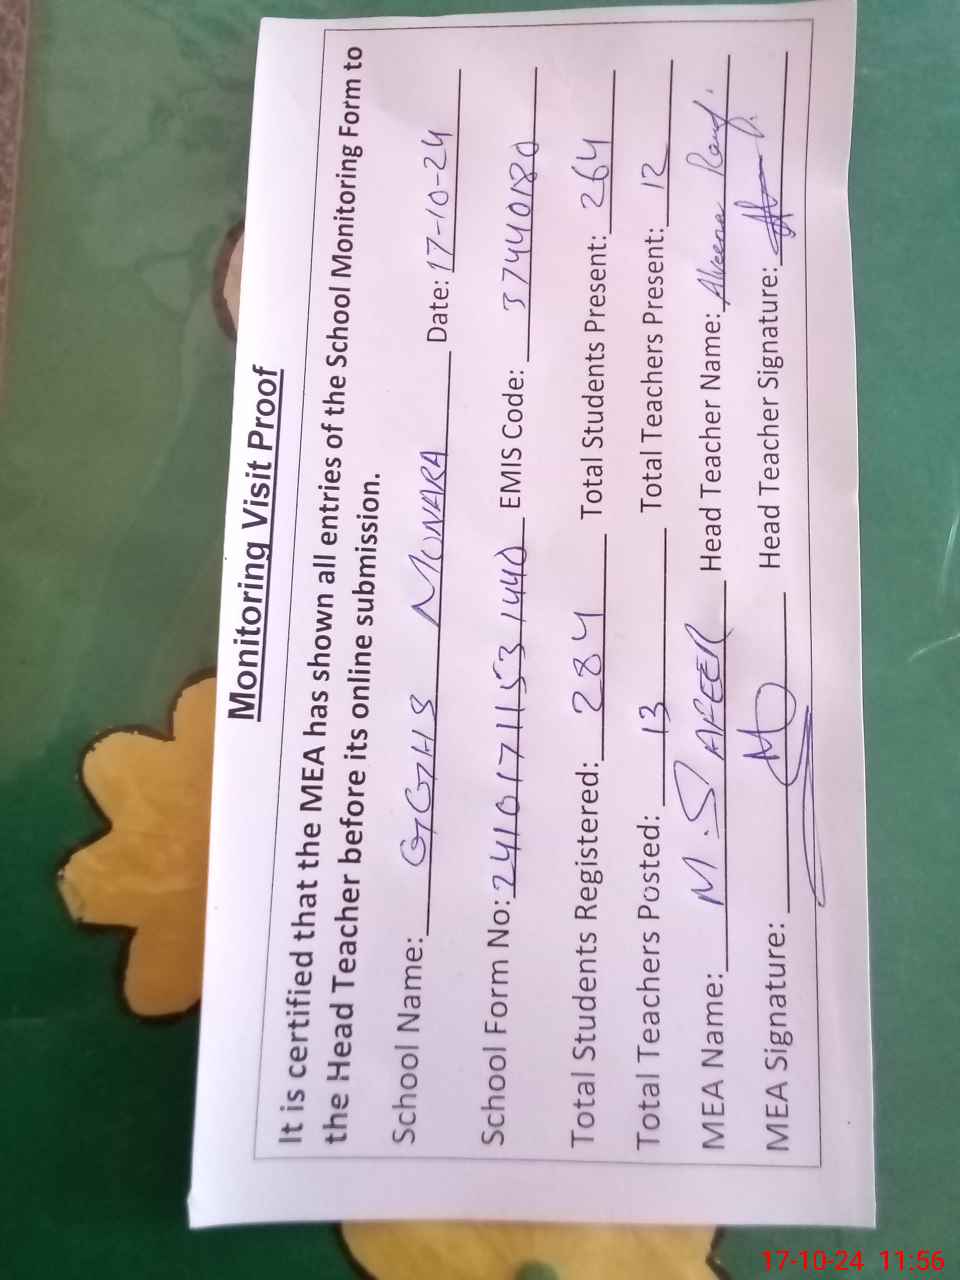 Monitoring Visit Proof
It is certified that the MEA has shown all entries of the School Monitoring Form to
the Head Teacher before its online submission.
School Name: GGHS MONARA Date: 17-10-24
School Form No: 24101711531440 EMIS Code: 37440180
Total Students Registered: 284 Total Students Present: 264
Total Teachers Posted: 13 Total Teachers Present: 12
MEA Name: M. SAFEER Head Teacher Name: Alveena Rauf
MEA Signature: Head Teacher Signature:
17-10-24 11:56